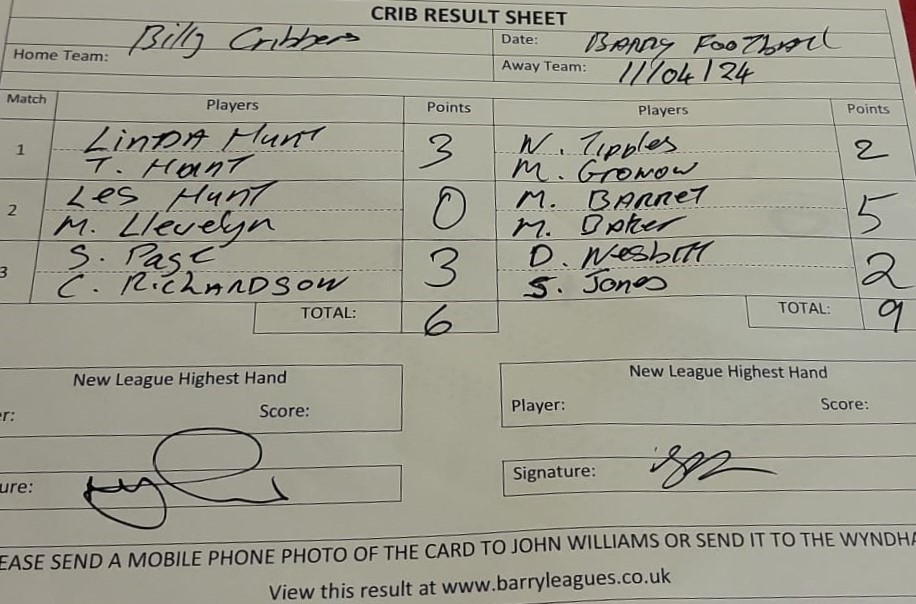 CRIB RESULT SHEET
Home Team: Billy Cribbers
Date: BARRY FOOTBALL
Away Team: 11/04/24
Match Players Points Players Points
1 LINDA HUNT 3 N. Tipples 2
T. HUNT M. GRONOW
2 LES HUNT 0 M. BARRET 5
M. Llevelyn M. BAKER
3 S. PAGE 3 D. NESBITT 2
C. RICHARDSON S. Jones
TOTAL: 6 TOTAL: 9
New League Highest Hand New League Highest Hand
er: Score: Player: Score:
ure: Signature:
EASE SEND A MOBILE PHONE PHOTO OF THE CARD TO JOHN WILLIAMS OR SEND IT TO THE WYNDHA
View this result at www.barryleagues.co.uk